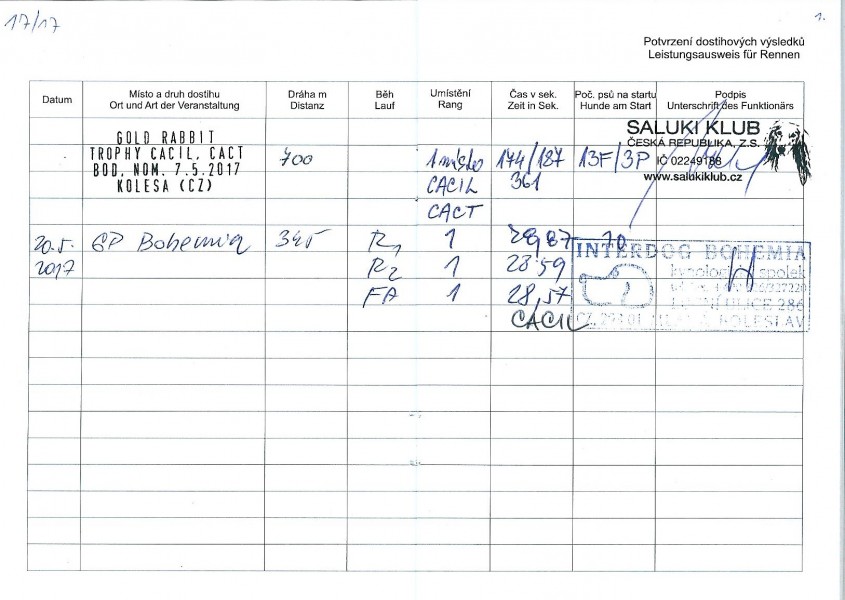 17/17
1.
Potvrzení dostihových výsledků
Leistungsausweis für Rennen
Datum
Místo a druh dostihu
Ort und Art der Veranstaltung
Dráha m
Distanz
Běh
Lauf
Umístění
Rang
Čas v sek.
Zeit in Sek.
Poč. psů na startu
Hunde am Start
Podpis
Unterschrift des Funktionärs
GOLD RABBIT
TROPHY CACIL, CACT
BOD, NOM. 7.5.2017
KOLESA (CZ)
700
1 místo
CACIL
CACT
174/187
361
13F/3P
SALUKI KLUB
ČESKÁ REPUBLIKA, Z.S.
IČ 02249188
www.salukiklub.cz
20.5.
2017
GP Bohemia
345
R1 1
R2 1 28,59
FA 1 28,57
CACIL
10
INTERDOG BOHEMIA
spolek
286
BOLESLAV